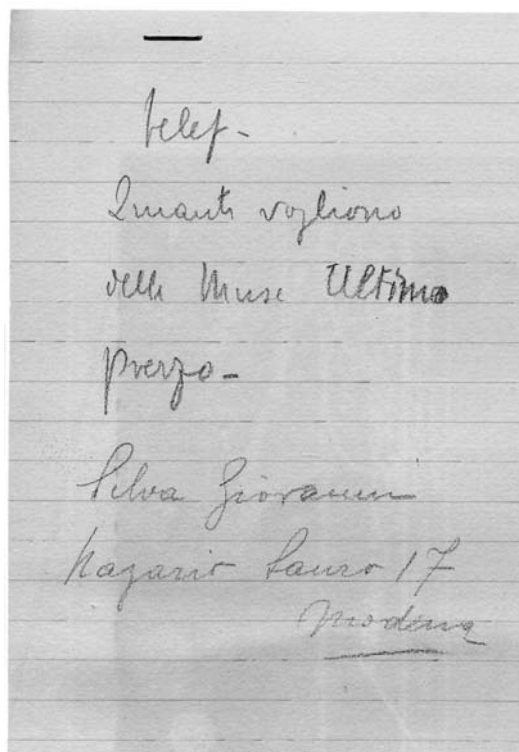 telef-
Quanti vogliono
delle Muse Ultimo
prezzo-
Silva Giovanni
Nazario Sauro 17
Modena